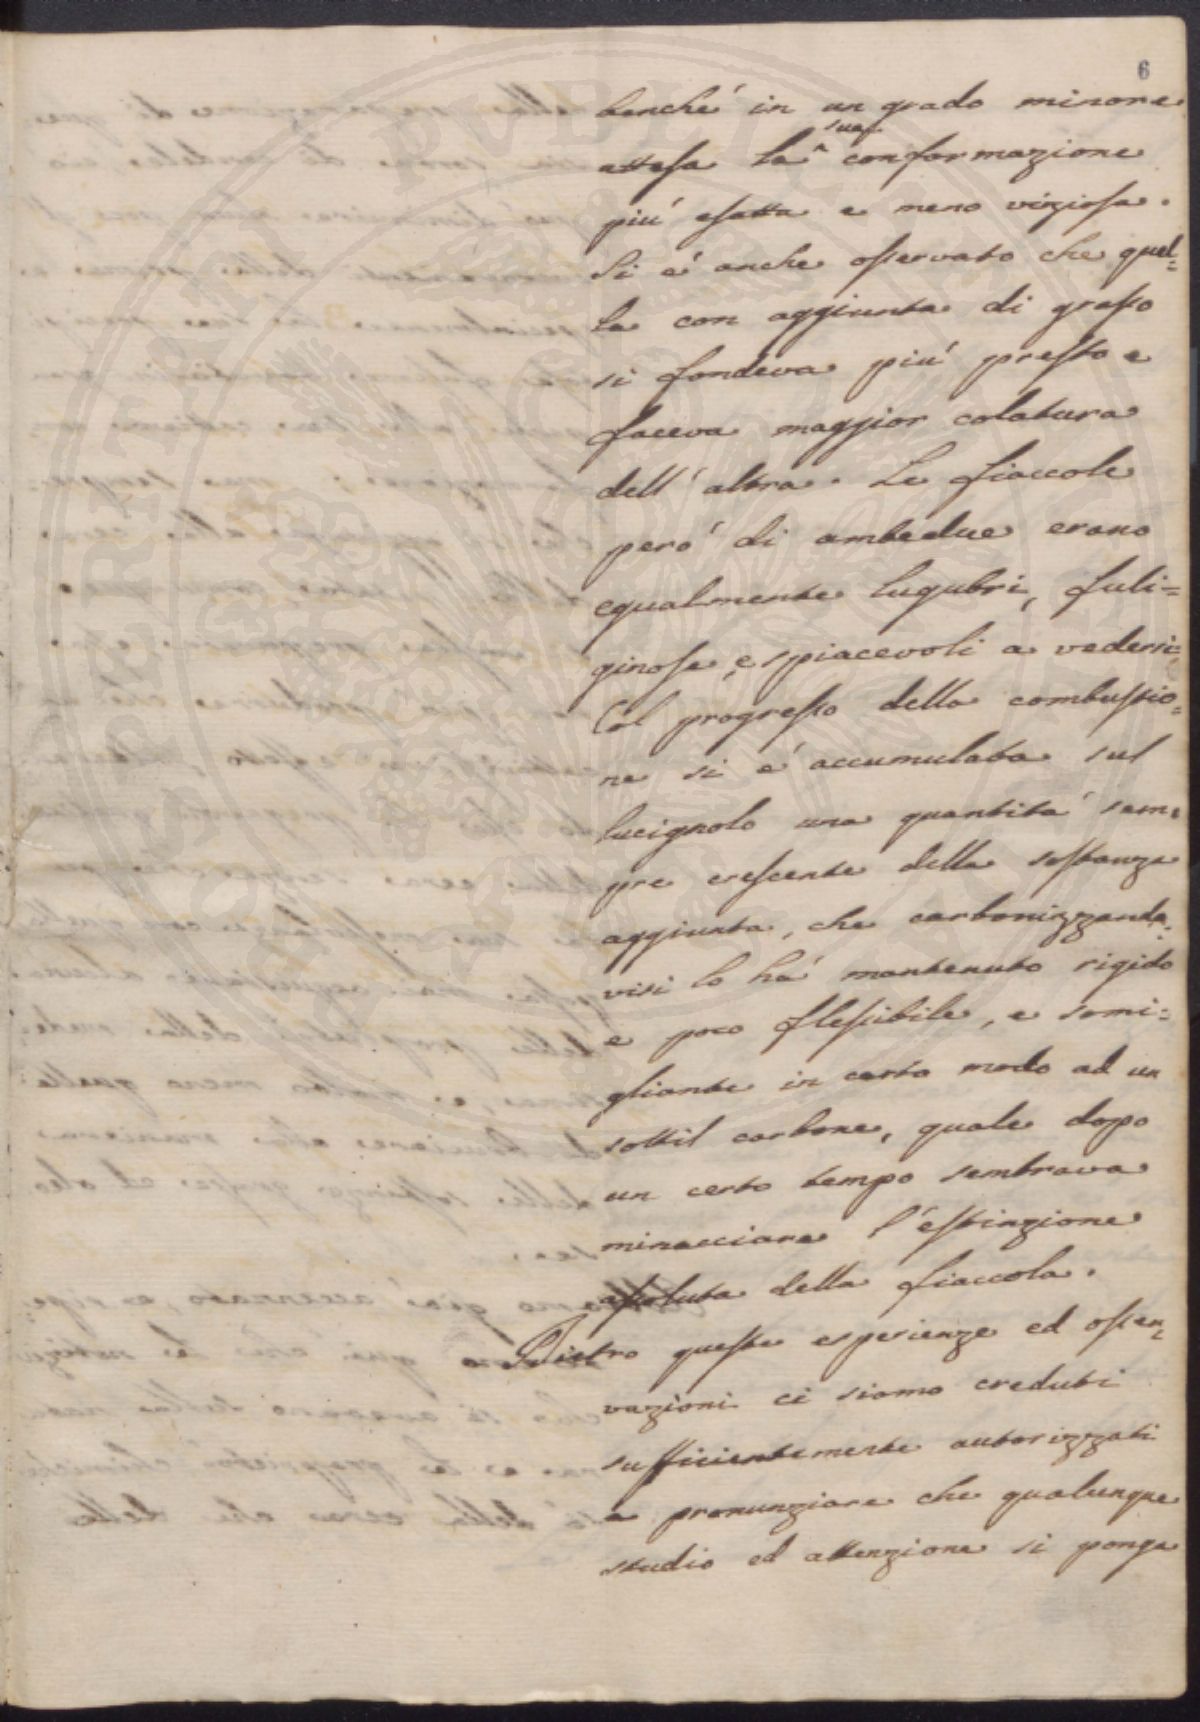 6
benché in un grado minore
attesa la ^sua conformazione
piú esatta e meno viziosa.
Si é anche osservato che quel=
la con aggiunta di grasso
si fondeva piú presto e
faceva maggior colatura
dell'altra. Le fiaccole
peró di ambedue erano
egualmente lugubri, fuli=
ginose, e spiacevoli a vedersi:
Col progresso della combustio=
ne si é accumulata sul
lucignolo una quantitá sem=
pre crescente della sostanza
aggiunta, che carbonizzando=
visi lo há mantenuto rigido
e poco flessibile, e somi=
gliante in certo modo ad un
sottil carbone, quale dopo
un certo tempo sembrava
minacciare l'estinzione
assoluta della fiaccola.
Dietro queste esperienze ed osser=
vazioni ci siamo creduti
sufficientemente autorizzati
a pronunziare che qualunque
studio ed attenzione si ponga